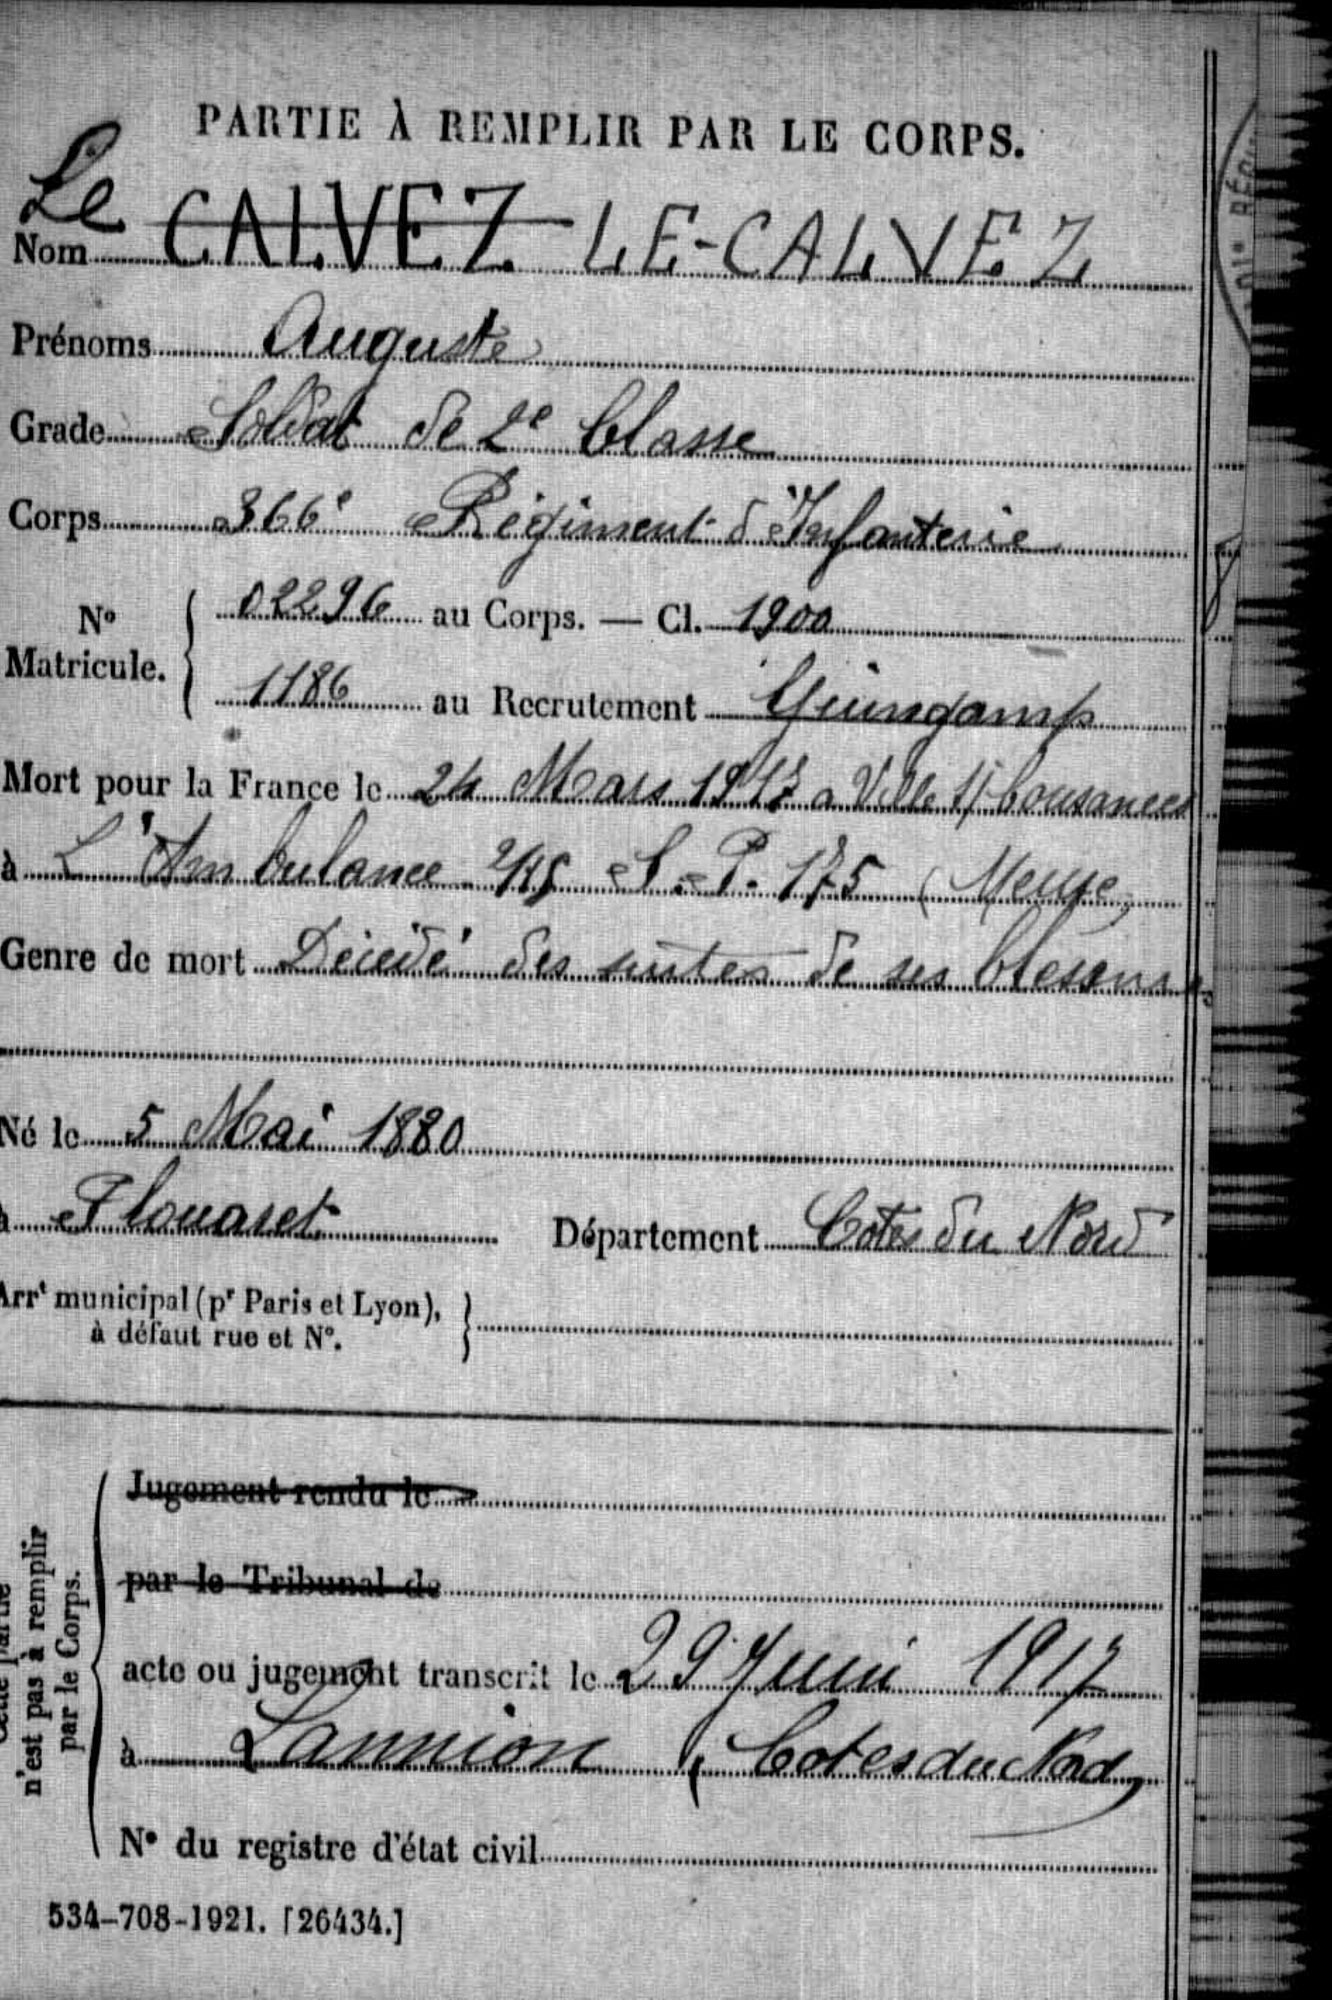 PARTIE À REMPLIR PAR LE CORPS.
Le
Nom CALVEZ LE-CALVEZ
Prénoms Auguste
Grade Soldat de 2e Classe
Corps 366e Régiment d'Infanterie
No Matricule. 02296 au Corps. — Cl. 1900
1186 au Recrutement Guingamp
Mort pour la France le 24 Mars 1917 a Ville s/ Cousances
à L'Ambulance 2/15 S. P. 175 (Meuse)
Genre de mort Décédé des suites de ses blessures
Né le 5 Mai 1880
à Plouaret Département Côtes du Nord
Arrt municipal (pr Paris et Lyon),
à défaut rue et No.
Cette partie
n'est pas à remplir
par le Corps.
Jugement rendu le
par le Tribunal de
acte ou jugement transcrit le 29 Juin 1917
à Lannion (Cotes du Nord)
No du registre d'état civil
534-708-1921. [26434.]